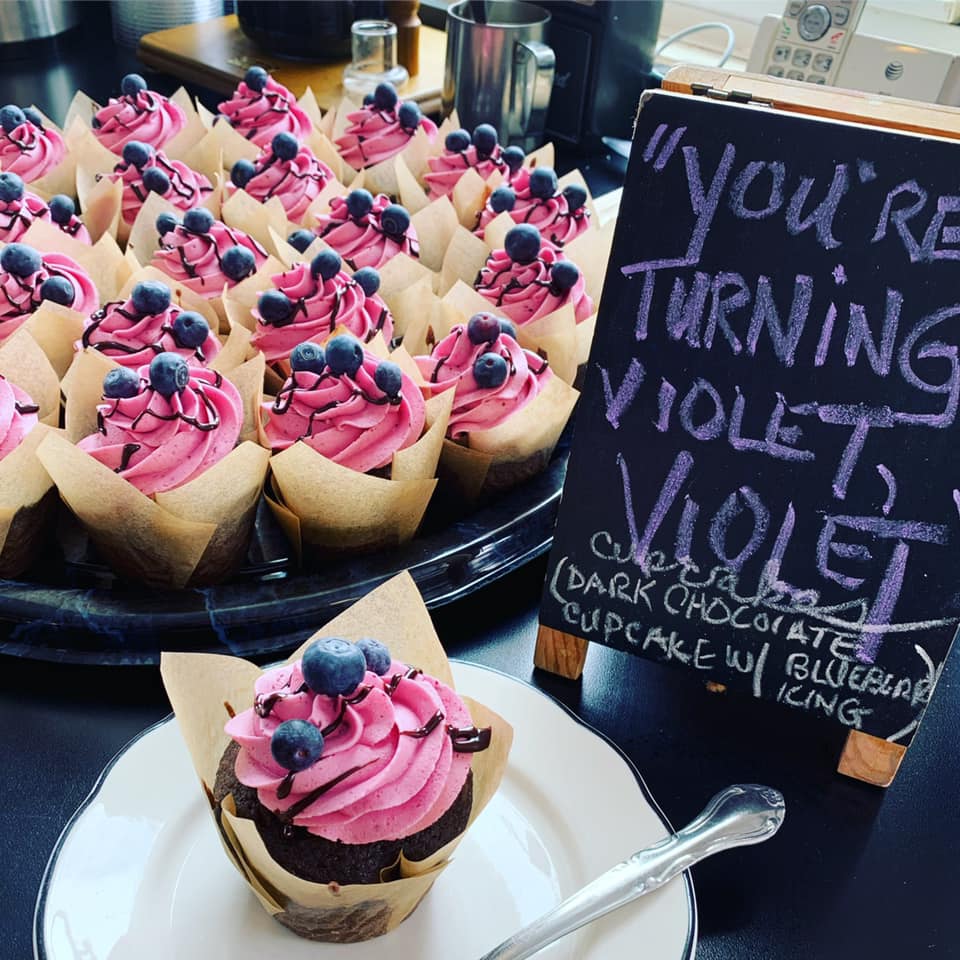 "YOU'RE
TURNING
VIOLET,
VIOLET
cupcakes
(DARK CHOCOLATE
CUPCAKE W/ BLUEBERRY)
ICING
AT&T